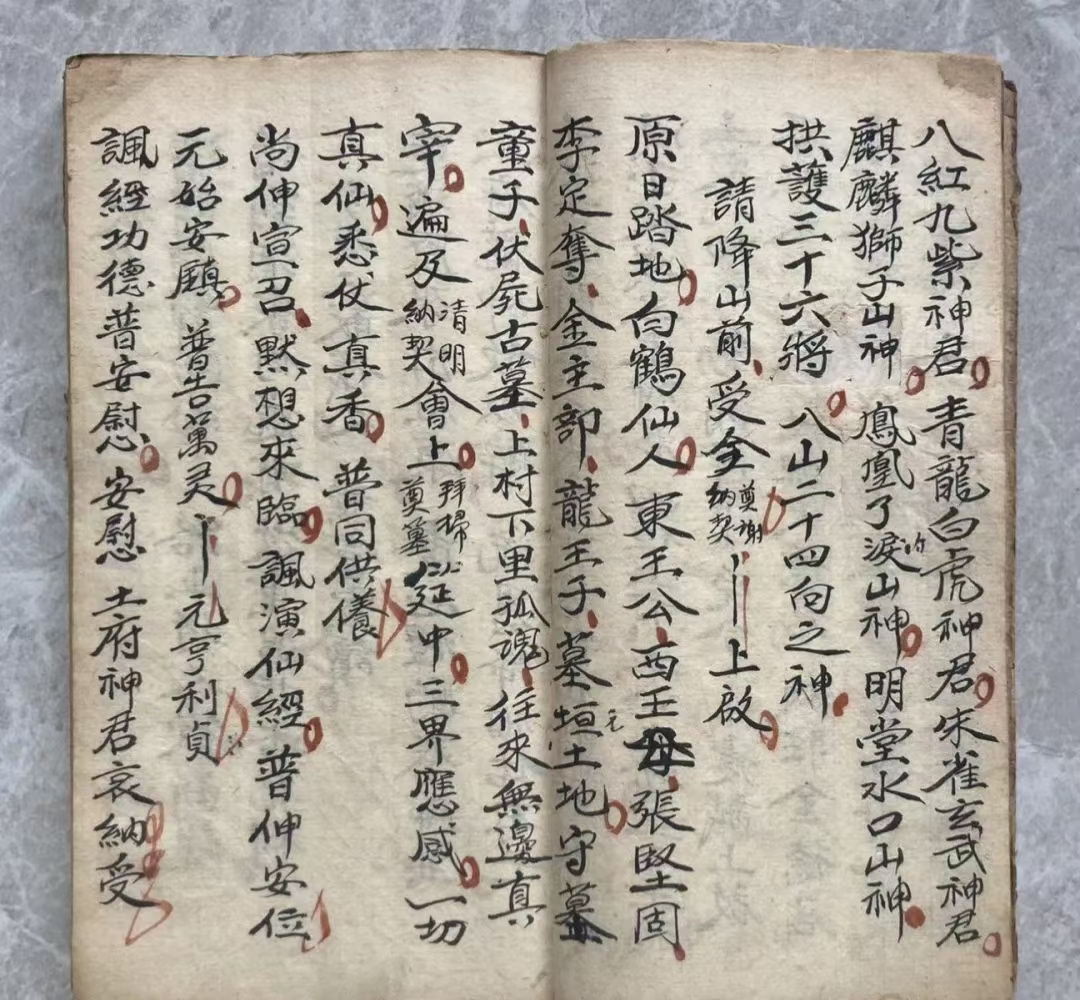 八紅九紫神君青龍白虎神君朱雀玄武神君
麒麟獅子山神鳳凰了淚的山神明堂水口山神
拱護三十六將八山二十四向之神
請降山前受全奠謝納契上啟
原日踏地白鶴仙人東王公西王母張堅固
李定奪金主部龍王子墓垣元土地守墓
童子伏屍古墓上村下里孤魂往來無邊真
宰遍及清明納契會上拜掃奠墓筵中三界應感一切
真仙悉仗真香普同供儀
尚伸宣召默想來臨諷演仙經普伸安位
元始安鎮普告萬灵元亨利貞
諷經功德普安慰安慰土府神君哀納受